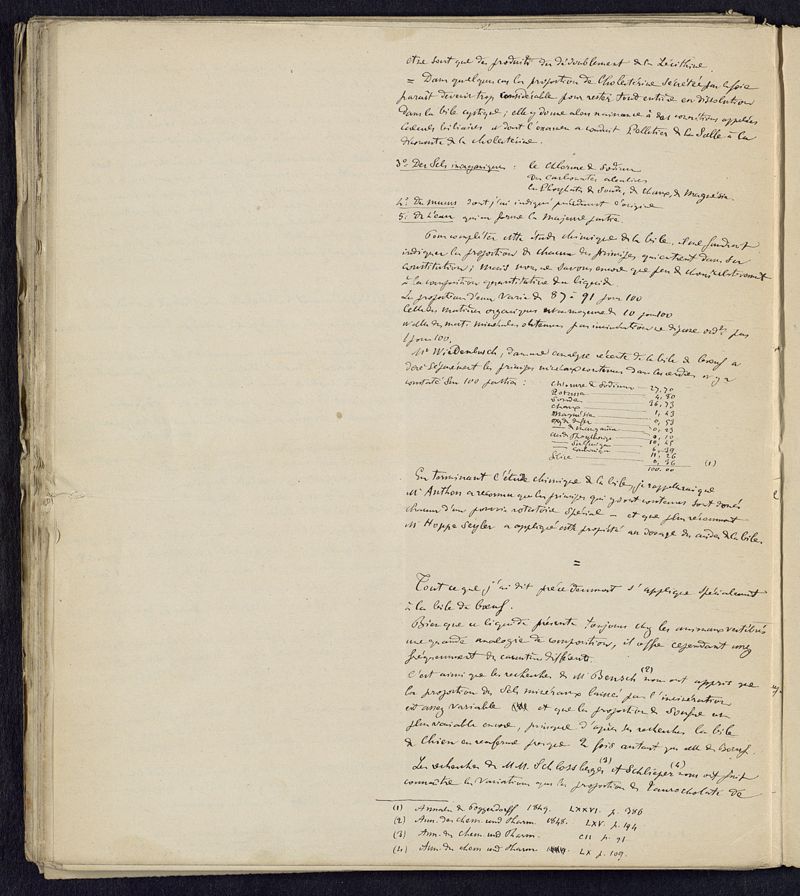 être sont que des produits du dédoublement de la Lécithine.
= Dans quelques cas la proportion de Cholestérine sécrétée par le foie
paraît devenir trop considérable pour rester tout entière en dissolution
dans la bile cystique ; elle y donne alors naissance à des concrétions appelées
Calculs biliaires et dont l'examen a conduit Pelletier de la Salle à la
découverte de la cholestérine.
3º. Des Sels inorganiques : le Chlorure de Sodium
Des Carbonates alcalins
les Phosphates de Soude, de chaux, de Magnésie.
4º. Du mucus dont j'ai indiqué précédemment l'origine
5º. De l'eau qui en forme la majeure partie
Pour compléter cette étude chimique de la bile, il me faudrait
indiquer la proportion de chacun des principes qui entrent dans sa
constitution ; mais nous ne savons encore que peu de choses relativement
à la composition quantitative du liquide.
La proportion d'eau varie de 87 à 91 pour 100
Celle des matières organiques est en moyenne de 10 pour 100
et celle des mat. minérales obtenues par incinération ne dépasse ord.t pas
1 pour 100.
Mr Wiedenbusch, dans une analyse récente de la bile de bœuf a
dosé séparément les principes minéraux contenus dans les cendres et y a
constaté sur 100 parties :
Chlorure de Sodium 27,70
Potasse 4,80
Soude 36,73
Chaux 1,43
Magnésie 0,53
oxyde de fer 0,23
— de manganèse 0,10
acide Phosphorique 10,45
— Sulfurique 6,39
— Carbonique 11,26
Silice 0,36 (1)
100.00
En terminant l'étude chimique de la bile, je rappellerai que
Mr Anthon a reconnu que les principes qui y sont contenus sont doués
chacun d'un pouvoir rotatoire spécial — et que plus récemment
Mr Hoppe Seyler a appliqué cette propriété au dosage des acides de la bile.
=
Tout ce que j'ai dit précédemment s'applique spécialement
à la bile de bœuf.
Bien que ce liquide présente toujours chez les animaux vertébrés
une grande analogie de composition, il offre cependant assez
fréquemment des caractères différents.
C'est ainsi que les recherches de Mr Bensch (2) nous ont appris que
la proportion des Sels minéraux laissés par l'incinération
est assez variable et que la proportion de Soufre est
plus variable encore, puisque d'après ses recherches la bile
de Chien en renferme presque 2 fois autant que celle de Bœuf.
Les recherches de M.M. Schlossberger (3) et Schlieper (4) nous ont fait
connaître les variations que la proportion de Taurocholate de
(1) Annalen de Poggendorff 1849. LXXVI. p. 386
(2) Ann. der chem. und Pharm. 1848. LXV. p. 194
(3) Ann. der chem und Pharm. CII p. 91.
(4) Ann. der chem und Pharm LX p. 109.